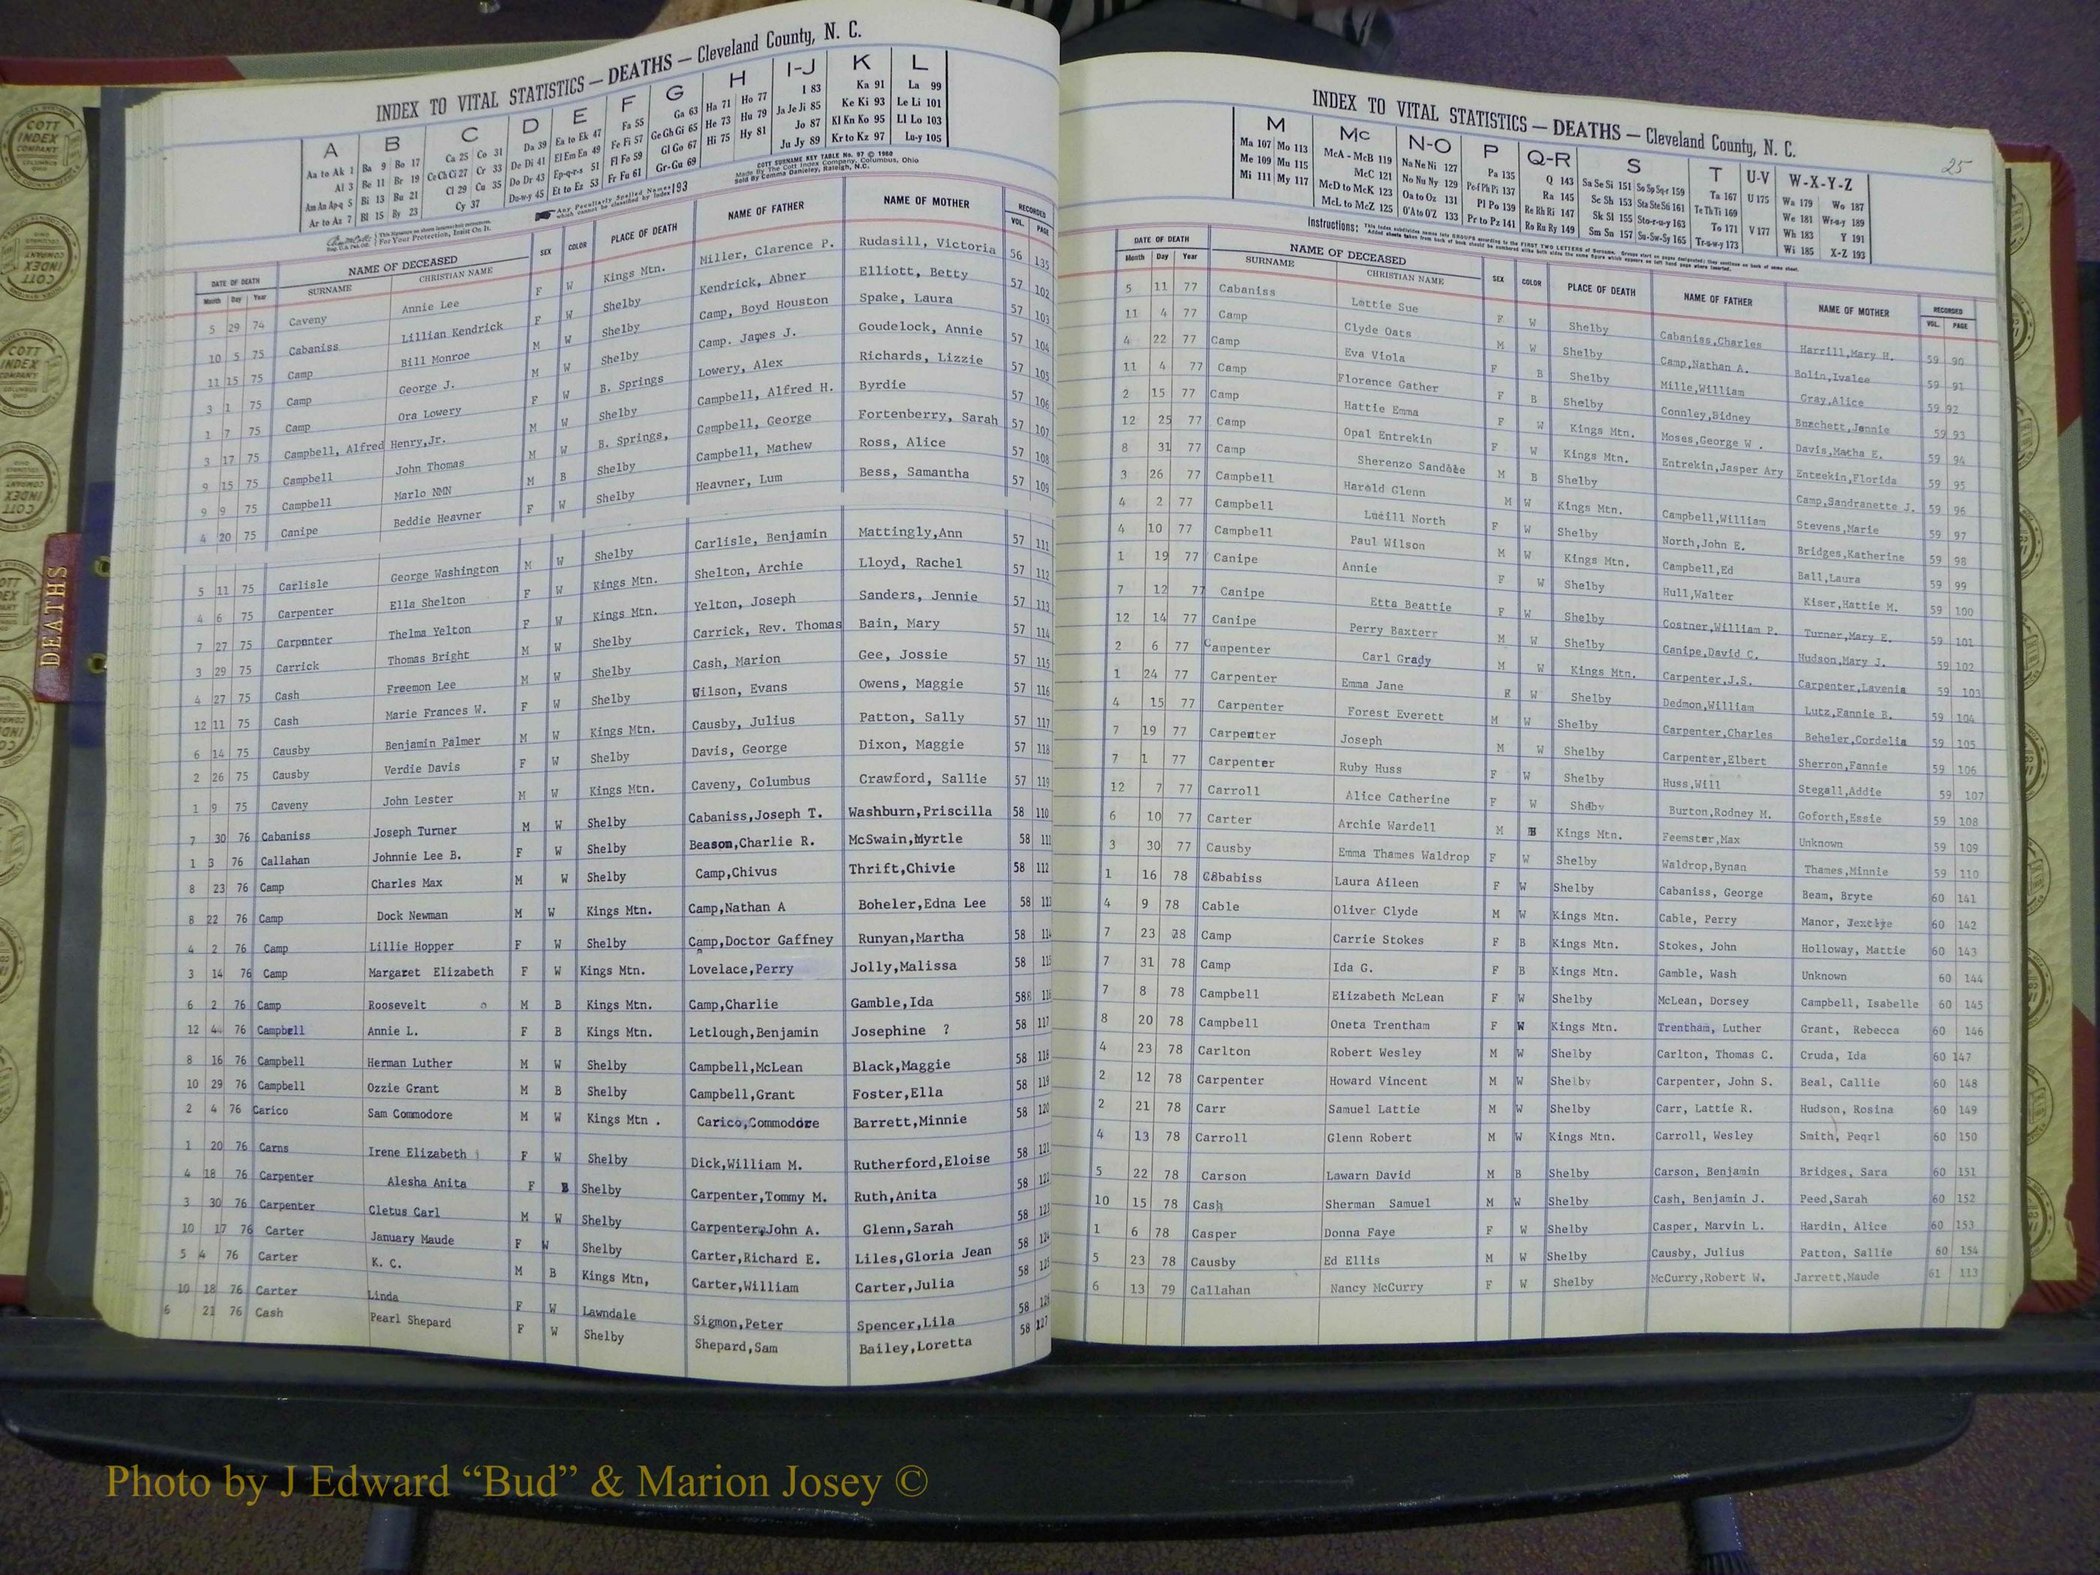 INDEX TO VITAL STATISTICS — DEATHS — Cleveland County, N. C.
A B C D E F G H I-J K L
Aa to Ak 1 Ba 9 Bo 17 Ca 25 Co 31 Da 39 Ea to Ek 47 Fa 55 Ga 63 Ha 71 Ho 77 I 83 Ka 91 La 99
Al 3 Be 11 Br 19 Ce Ch Ci 27 Cr 33 De Di 41 El Em En 49 Fe Fi 57 Ge Gh Gi 65 He 73 Hu 79 Ja Je Ji 85 Ke Ki 93 Le Li 101
Am An Ap-q 5 Bi 13 Bu 21 Cl 29 Cu 35 Do Dr 43 Ep-q-r-s 51 Fl Fo 59 Gl Go 67 Hi 75 Hy 81 Jo 87 Kl Kn Ko 95 Ll Lo 103
Ar to Az 7 Bl 15 By 23 Cy 37 Du-w-y 45 Et to Ez 53 Fr Fu 61 Gr-Gu 69 Ju Jy 89 Kr to Kz 97 Lu-y 105
Any Peculiarly Spelled Names which cannot be classified by Index 193
COTT SURNAME KEY TABLE No. 97 © 1980
Made By The Cott Index Company, Columbus, Ohio
Sold By Cemma Danieley, Raleigh, N.C.
For Your Protection, Insist On It.
DATE OF DEATH NAME OF DECEASED SEX COLOR PLACE OF DEATH NAME OF FATHER NAME OF MOTHER RECORDED
Month Day Year SURNAME CHRISTIAN NAME VOL. PAGE
5 29 74 Caveny Annie Lee F W Kings Mtn. Miller, Clarence P. Rudasill, Victoria 56 135
10 5 75 Cabaniss Lillian Kendrick F W Shelby Kendrick, Abner Elliott, Betty 57 102
11 15 75 Camp Bill Monroe M W Shelby Camp, Boyd Houston Spake, Laura 57 103
3 1 75 Camp George J. M W Shelby Camp. James J. Goudelock, Annie 57 104
1 7 75 Camp Ora Lowery F W B. Springs Lowery, Alex Richards, Lizzie 57 105
3 17 75 Campbell, Alfred Henry,Jr. M W Shelby Campbell, Alfred H. Byrdie 57 106
9 15 75 Campbell John Thomas M W B. Springs, Campbell, George Fortenberry, Sarah 57 107
9 9 75 Campbell Marlo NMN M B Shelby Campbell, Mathew Ross, Alice 57 108
4 20 75 Canipe Beddie Heavner F W Shelby Heavner, Lum Bess, Samantha 57 109
5 11 75 Carlisle George Washington M W Shelby Carlisle, Benjamin Mattingly,Ann 57 111
4 6 75 Carpenter Ella Shelton F W Kings Mtn. Shelton, Archie Lloyd, Rachel 57 112
7 27 75 Carpenter Thelma Yelton F W Kings Mtn. Yelton, Joseph Sanders, Jennie 57 113
3 29 75 Carrick Thomas Bright M W Shelby Carrick, Rev. Thomas Bain, Mary 57 114
4 27 75 Cash Freemon Lee M W Shelby Cash, Marion Gee, Jossie 57 115
12 11 75 Cash Marie Frances W. F W Shelby Wilson, Evans Owens, Maggie 57 116
6 14 75 Causby Benjamin Palmer M W Kings Mtn. Causby, Julius Patton, Sally 57 117
2 26 75 Causby Verdie Davis F W Shelby Davis, George Dixon, Maggie 57 118
1 9 75 Caveny John Lester M W Kings Mtn. Caveny, Columbus Crawford, Sallie 57 119
7 30 76 Cabaniss Joseph Turner M W Shelby Cabaniss,Joseph T. Washburn,Priscilla 58 110
1 3 76 Callahan Johnnie Lee B. F W Shelby Beason,Charlie R. McSwain,Myrtle 58 111
8 23 76 Camp Charles Max M W Shelby Camp,Chivus Thrift,Chivie 58 112
8 22 76 Camp Dock Newman M W Kings Mtn. Camp,Nathan A Boheler,Edna Lee 58 113
4 2 76 Camp Lillie Hopper F W Shelby Camp,Doctor Gaffney Runyan,Martha 58 114
3 14 76 Camp Margaret Elizabeth F W Kings Mtn. Lovelace,Perry Jolly,Malissa 58 115
6 2 76 Camp Roosevelt M B Kings Mtn. Camp,Charlie Gamble,Ida 58 116
12 4 76 Campbell Annie L. F B Kings Mtn. Letlough,Benjamin Josephine ? 58 117
8 16 76 Campbell Herman Luther M W Shelby Campbell,McLean Black,Maggie 58 118
10 29 76 Campbell Ozzie Grant M B Shelby Campbell,Grant Foster,Ella 58 119
2 4 76 Carico Sam Commodore M W Kings Mtn . Carico,Commodore Barrett,Minnie 58 120
1 20 76 Carns Irene Elizabeth F W Shelby Dick,William M. Rutherford,Eloise 58 121
4 18 76 Carpenter Alesha Anita F B Shelby Carpenter,Tommy M. Ruth,Anita 58 122
3 30 76 Carpenter Cletus Carl M W Shelby Carpenter,John A. Glenn,Sarah 58 123
10 17 76 Carter January Maude F W Shelby Carter,Richard E. Liles,Gloria Jean 58 124
5 4 76 Carter K. C. M B Kings Mtn, Carter,William Carter,Julia 58 125
10 18 76 Carter Linda F W Lawndale Sigmon,Peter Spencer,Lila 58 126
6 21 76 Cash Pearl Shepard F W Shelby Shepard,Sam Bailey,Loretta 58 127
INDEX TO VITAL STATISTICS — DEATHS — Cleveland County, N. C.
25
M Mc N-O P Q-R S T U-V W-X-Y-Z
Ma 107 Mo 113 McA - McB 119 Na Ne Ni 127 Pa 135 Q 143 Sa Se Si 151 So Sp Sq-r 159 Ta 167 U 175 Wa 179 Wo 187
Me 109 Mu 115 McC 121 No Nu Ny 129 Pe Pf Ph Pi 137 Ra 145 Sc Sh 153 Sta Ste Sti 161 Te Th Ti 169 V 177 We 181 Wr-u-y 189
Mi 111 My 117 McD to McK 123 Oa to Oz 131 Pl Po 139 Re Rh Ri 147 Sk Sl 155 Sto-r-u-y 163 To 171 Wh 183 Y 191
McL to McZ 125 O'A to O'Z 133 Pr to Pz 141 Ro Ru Ry 149 Sm Sn 157 Su-Sw-Sy 165 Tr-u-w-y 173 Wi 185 X-Z 193
Instructions:
DATE OF DEATH NAME OF DECEASED SEX COLOR PLACE OF DEATH NAME OF FATHER NAME OF MOTHER RECORDED
Month Day Year SURNAME CHRISTIAN NAME VOL. PAGE
5 11 77 Cabaniss Lottie Sue F W Shelby Cabaniss,Charles Harrill,Mary H. 59 90
11 4 77 Camp Clyde Oats M W Shelby Camp,Nathan A. Bolin,Ivalee 59 91
4 22 77 Camp Eva Viola F B Shelby Mille,William Gray,Alice 59 92
11 4 77 Camp Florence Gather F B Shelby Connley,Sidney Burchett,Jennie 59 93
2 15 77 Camp Hattie Emma F W Kings Mtn. Moses,George W . Davis,Matha E. 59 94
12 25 77 Camp Opal Entrekin F W Kings Mtn. Entrekin,Jasper Ary Entrekin,Florida 59 95
8 31 77 Camp Sherenzo M B Shelby Camp,Sandranette J. 59 96
3 26 77 Campbell Harold Glenn M W Kings Mtn. Campbell,William Stevens,Marie 59 97
4 2 77 Campbell Lucill North F W Shelby North,John E. Bridges,Katherine 59 98
4 10 77 Campbell Paul Wilson M W Kings Mtn. Campbell,Ed Ball,Laura 59 99
1 19 77 Canipe Annie F W Shelby Hull,Walter Kiser,Hattie M. 59 100
7 12 77 Canipe Etta Beattie F W Shelby Costner,William P. Turner,Mary E. 59 101
12 14 77 Canipe Perry Baxterr M W Shelby Canipe,David C. Hudson,Mary J. 59 102
2 6 77 Carpenter Carl Grady M W Kings Mtn. Carpenter,J.S. Carpenter,Lavenia 59 103
1 24 77 Carpenter Emma Jane F W Shelby Dedmon,William Lutz,Fannie B. 59 104
4 15 77 Carpenter Forest Everett M W Shelby Carpenter,Charles Beheler,Cordelia 59 105
7 19 77 Carpenter Joseph M W Shelby Carpenter,Elbert Sherron,Fannie 59 106
7 1 77 Carpenter Ruby Huss F W Shelby Huss,Will Stegall,Addie 59 107
12 7 77 Carroll Alice Catherine F W Shelby Burton,Rodney M. Goforth,Essie 59 108
6 10 77 Carter Archie Wardell M B Kings Mtn. Feemster,Max Unknown 59 109
3 30 77 Causby Emma Thames Waldrop F W Shelby Waldrop,Bynan Thames,Minnie 59 110
1 16 78 Cababiss Laura Aileen F W Shelby Cabaniss, George Beam, Bryte 60 141
4 9 78 Cable Oliver Clyde M W Kings Mtn. Cable, Perry Manor, 60 142
7 23 78 Camp Carrie Stokes F B Kings Mtn. Stokes, John Holloway, Mattie 60 143
7 31 78 Camp Ida G. F B Kings Mtn. Gamble, Wash Unknown 60 144
7 8 78 Campbell Elizabeth McLean F W Shelby McLean, Dorsey Campbell, Isabelle 60 145
8 20 78 Campbell Oneta Trentham F W Kings Mtn. Trentham, Luther Grant, Rebecca 60 146
4 23 78 Carlton Robert Wesley M W Shelby Carlton, Thomas C. Cruda, Ida 60 147
2 12 78 Carpenter Howard Vincent M W Shelby Carpenter, John S. Beal, Callie 60 148
2 21 78 Carr Samuel Lattie M W Shelby Carr, Lattie R. Hudson, Rosina 60 149
4 13 78 Carroll Glenn Robert M W Kings Mtn. Carroll, Wesley Smith, Peqrl 60 150
5 22 78 Carson Lawarn David M B Shelby Carson, Benjamin Bridges, Sara 60 151
10 15 78 Cash Sherman Samuel M W Shelby Cash, Benjamin J. Peed,Sarah 60 152
1 6 78 Casper Donna Faye F W Shelby Casper, Marvin L. Hardin, Alice 60 153
5 23 78 Causby Ed Ellis M W Shelby Causby, Julius Patton, Sallie 60 154
6 13 79 Callahan Nancy McCurry F W Shelby McCurry,Robert W. Jarrett,Maude 61 113
DEATHS
COTT INDEX COMPANY
Photo by J Edward “Bud” & Marion Josey ©